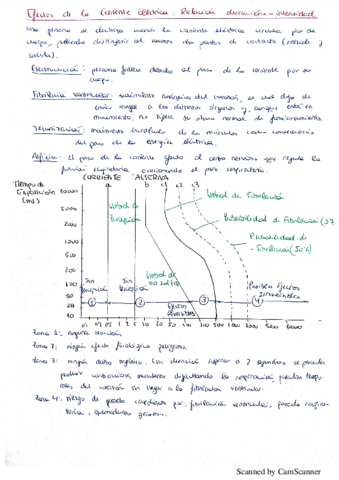 Efectos de la Corriente Eléctrica. Relación duración-intensidad
Una persona se electriza cuando la corriente eléctrica circula por su
cuerpo, pudiendo distinguir al menos dos puntos de contacto (entrada y
salida).
Electrocución: persona fallece debido al paso de la corriente por su
cuerpo.
Fibrilación ventricular: movimiento anárquico del corazón, el cual deja de
enviar sangre a los distintos órganos y, aunque esté en
movimiento, no sigue su ritmo normal de funcionamiento
Tetanización: movimiento incontrolado de los músculos como consecuencia
del paso de la energía eléctrica.
Asfixia: el paso de la corriente afecta al centro nervioso que regula la
función respiratoria, ocasionando el paro respiratorio.
Tiempo de
Exposición
(ms)
CORRIENTE ALTERNA
a b c1 c2 c3
10000
5000
2000
1000
500
200
100
50
20
Umbral de
Percepción
Umbral de
no soltar
Umbral de Fibrilación
Probabilidad de Fibrilación (5%)
Probabilidad de
Fibrilación (50%)
Sin
Percepción
Sin
Efectos
Posibles Efectos
Irreversibles
1 2 3 4
0'1 0'2 0'5 1 2 5 10 20 50 100 200 500 1000 2000 5000 10000
Zona 1: ninguna reacción
Zona 2: ningún efecto fisiológico peligroso.
Zona 3: ningún daño orgánico. Con duración superior a 2 segundos se pueden
producir contracciones musculares dificultando la respiración, paradas tempo-
rales del corazón sin llegar a la fibrilación ventricular.
Zona 4: riesgo de parada cardíaca por: fibrilación ventricular, parada respira-
toria, quemaduras graves.
Scanned by CamScanner